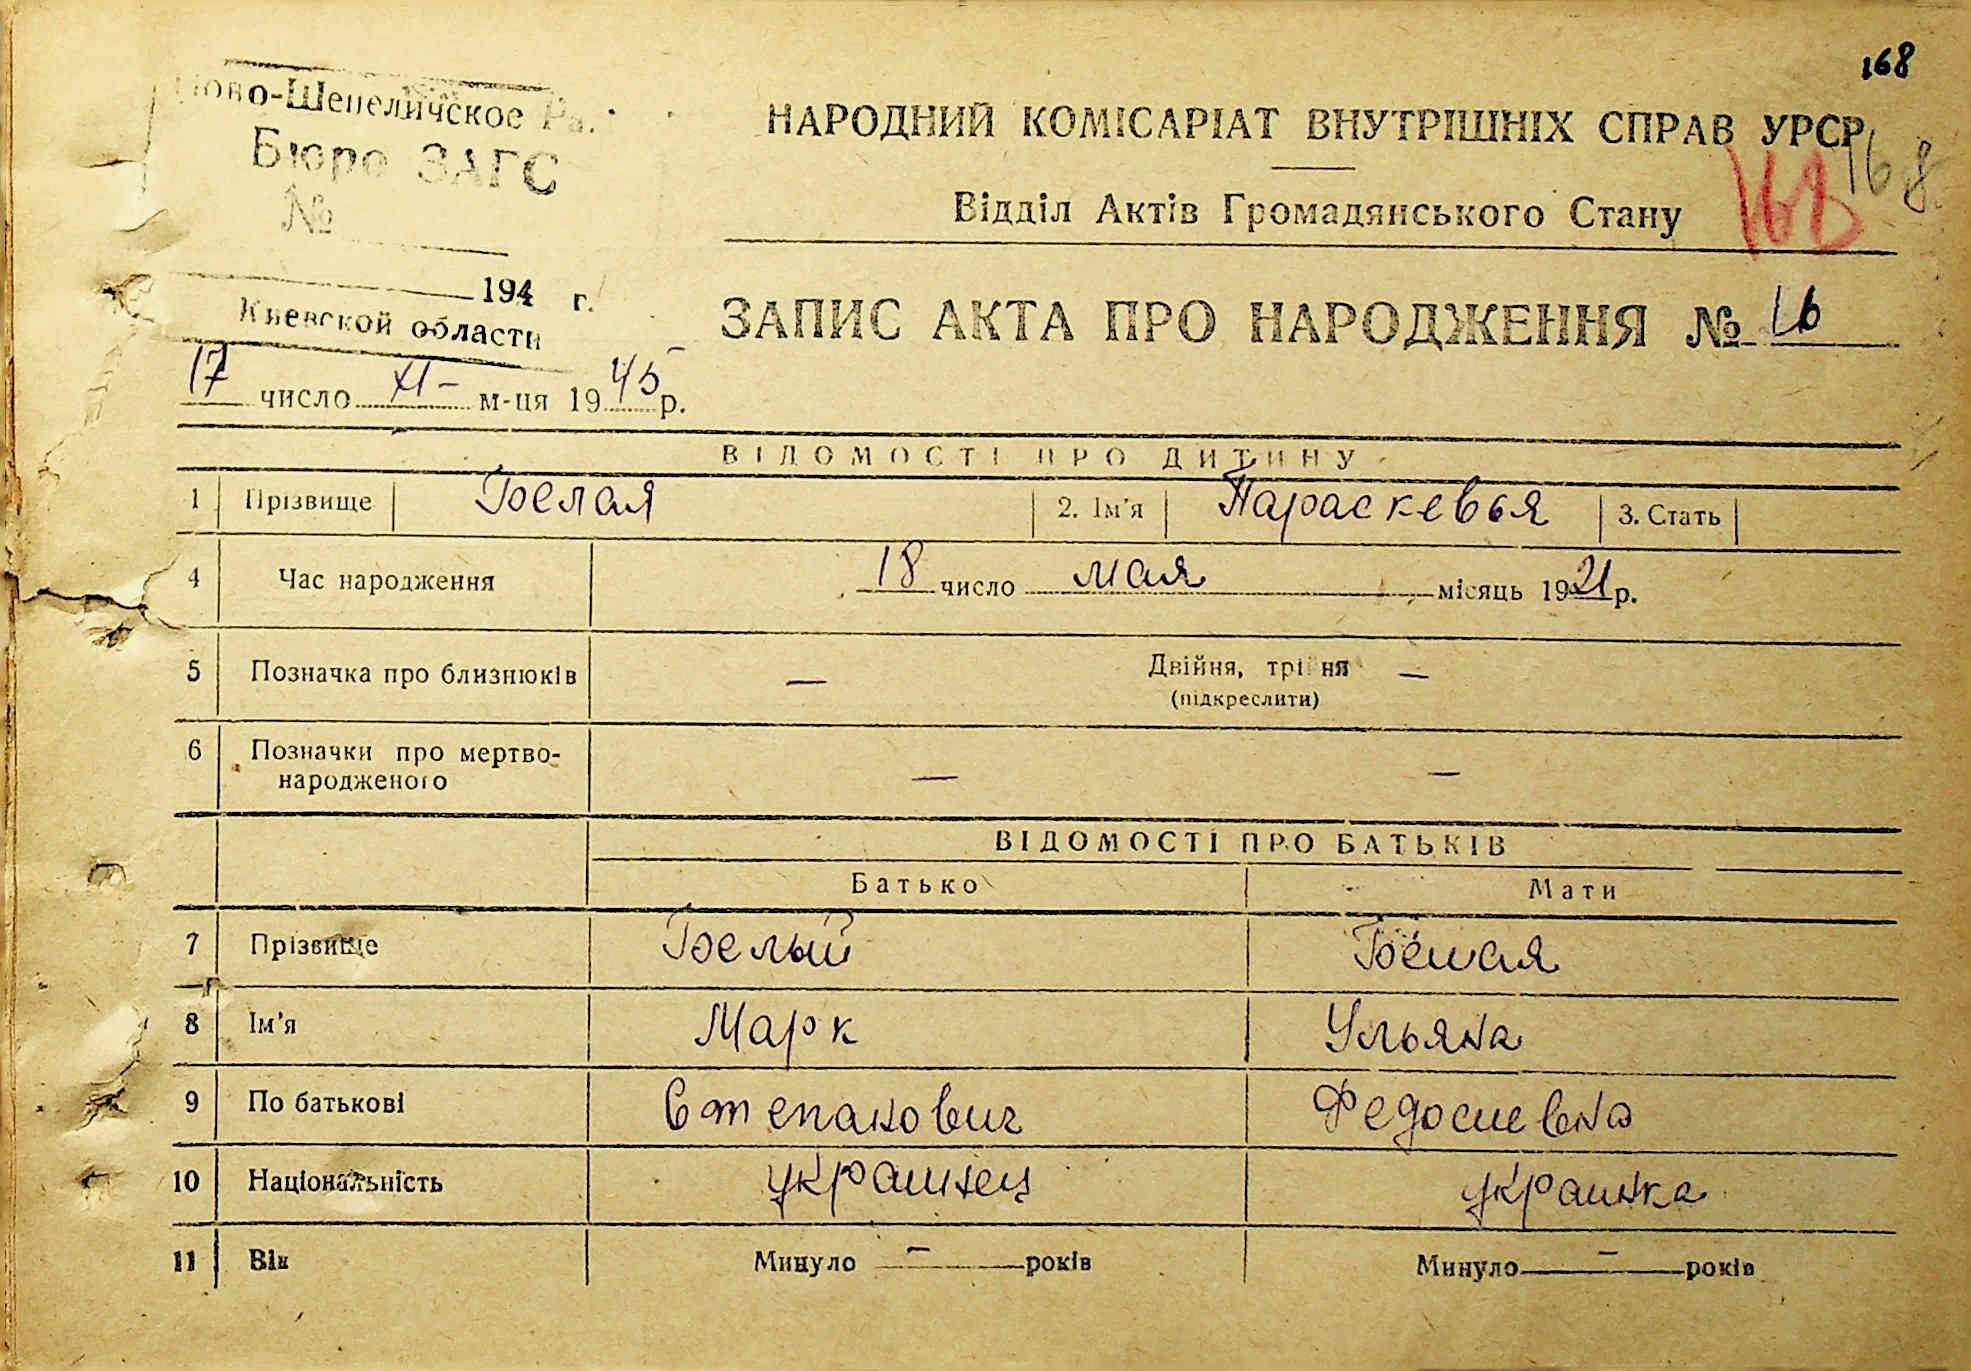 168
Ново-Шепеличское Ра.
Бюро ЗАГС
№
194 г.
Киевской области
НАРОДНИЙ КОМІСАРІАТ ВНУТРІШНІХ СПРАВ УРСР
168 168
Відділ Актів Громадянського Стану
ЗАПИС АКТА ПРО НАРОДЖЕННЯ № 16
17 число XI - м-ця 1945 р.
ВІДОМОСТІ ПРО ДИТИНУ
1 Прізвище Белая 2. Ім'я Параскевья 3. Стать
4 Час народження 18 число мая місяць 1921 р.
5 Позначка про близнюків — Двійня, трійня —
(підкреслити)
6 Позначки про мертво-
народженого — —
ВІДОМОСТІ ПРО БАТЬКІВ
Батько Мати
7 Прізвище Белый Белая
8 Ім'я Марк Ульяна
9 По батькові Степанович Федосиевна
10 Національність украинец украинка
11 Вік Минуло — років Минуло — років